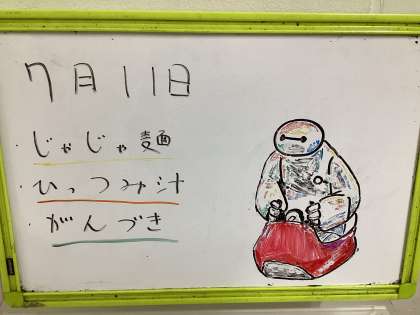 7月11日
・じゃじゃ麺
・ひっつみ汁
・がんづき